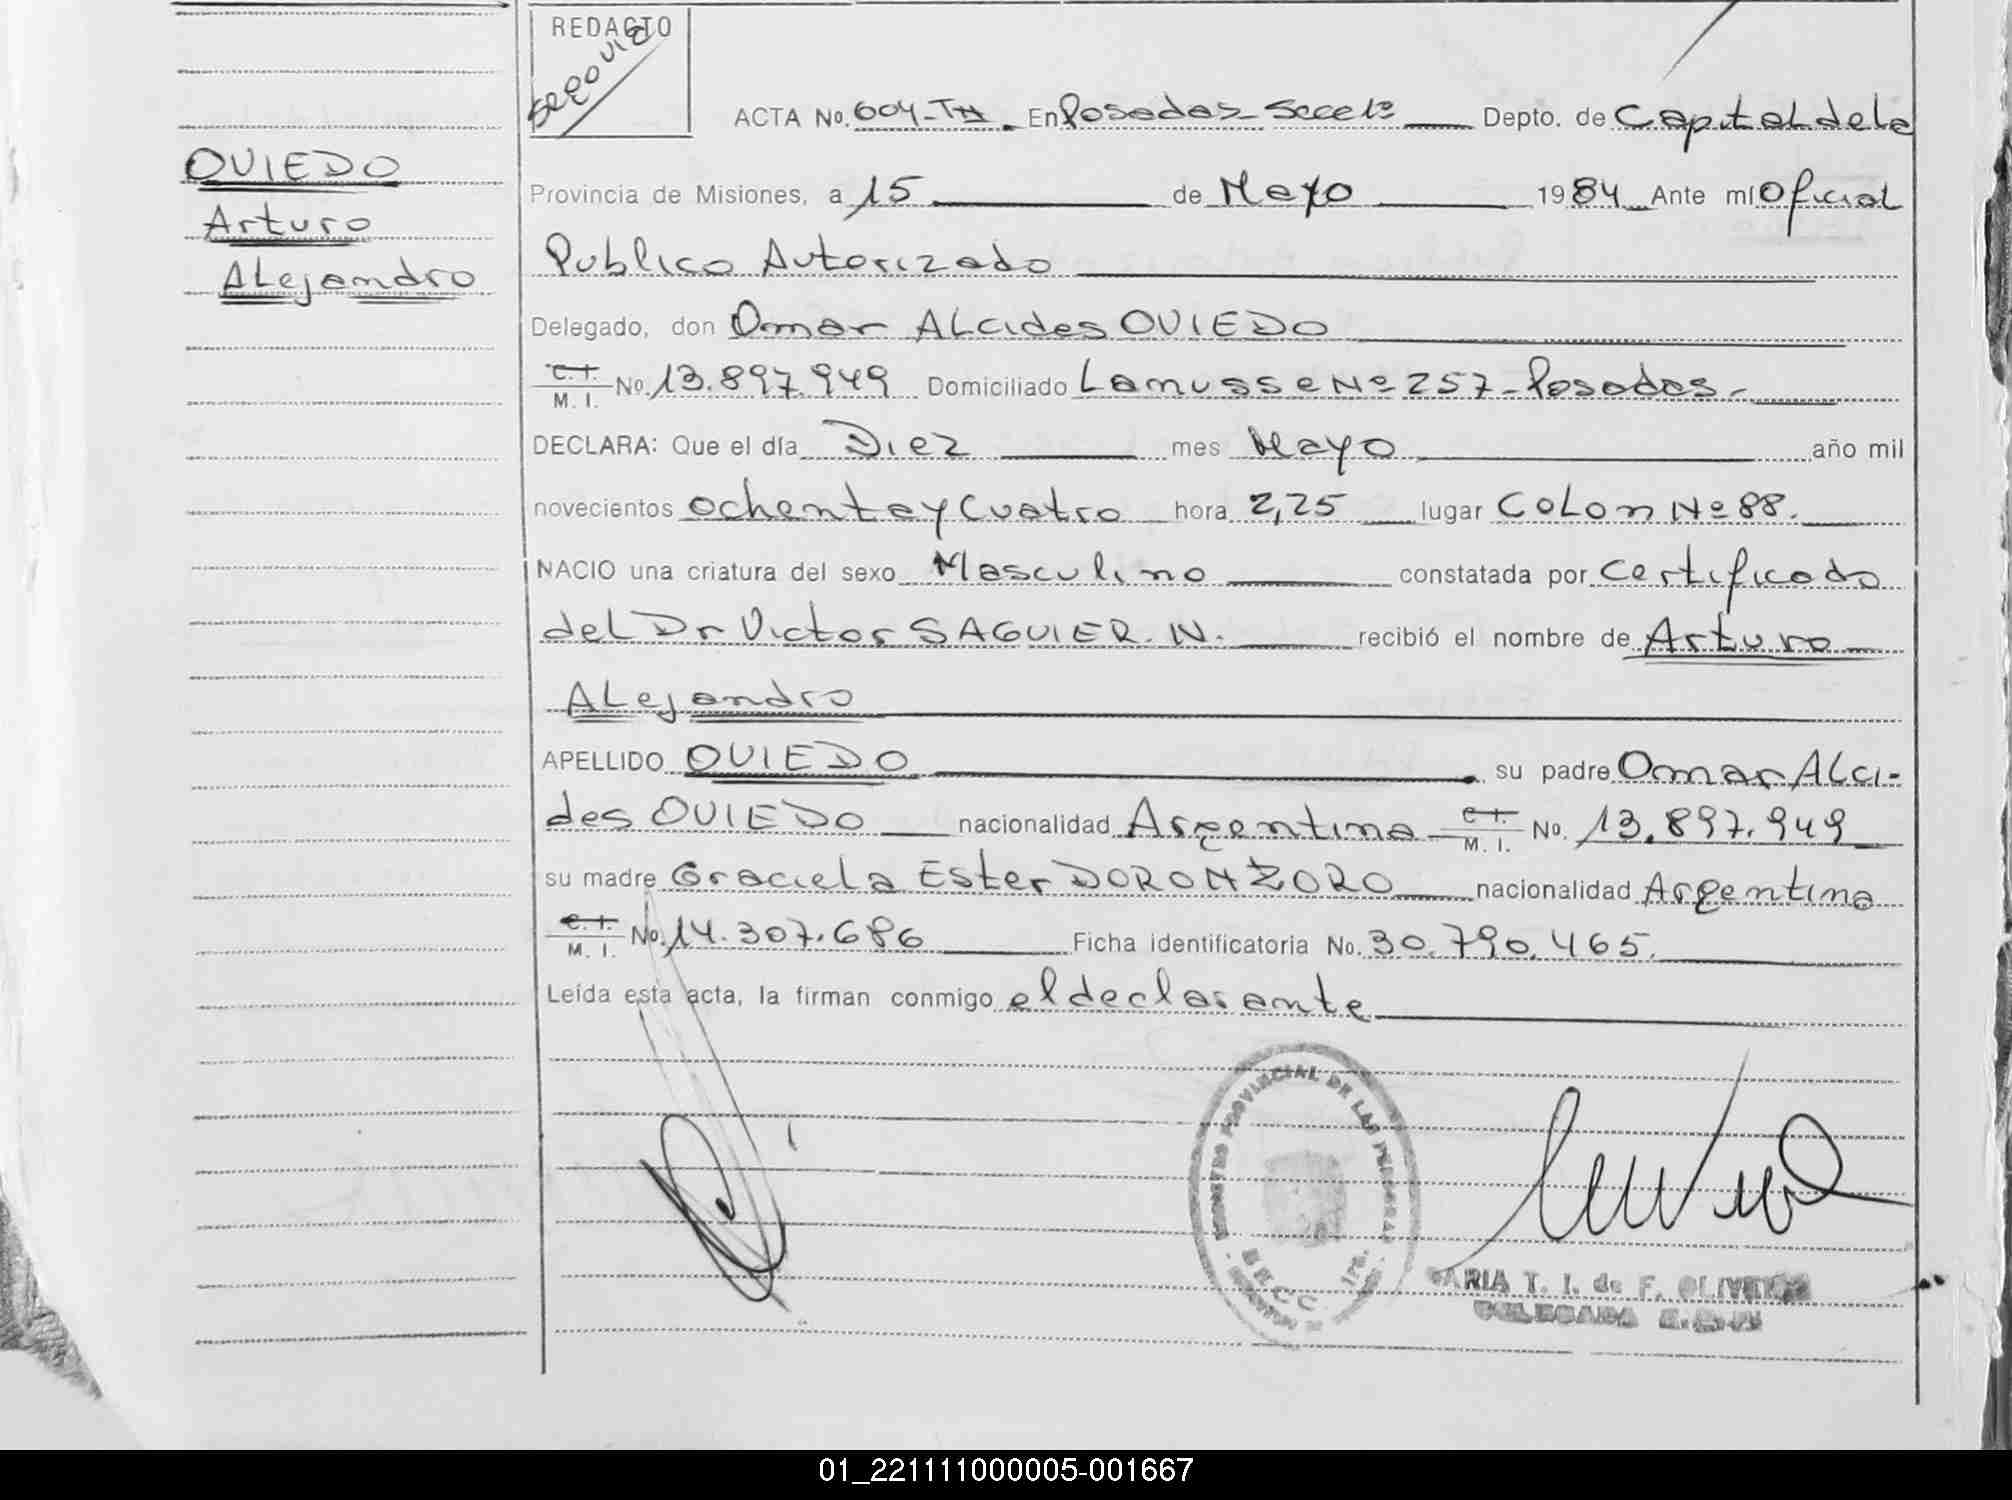 REDACTO
Segovia
ACTA No. 604-TH. En Posadas-Secc 1ª Depto. de Capital de la
OVIEDO
Arturo
Alejandro
Provincia de Misiones, a 15 de Mayo 1984 Ante mí Oficial
Publico Autorizado
Delegado, don Omar Alcides OVIEDO
C.I.
M. I. No. 13.897.949 Domiciliado Lanusse Nº 257-Posadas-
DECLARA: Que el día Diez mes Mayo año mil
novecientos ochenta y Cuatro hora 2,25 lugar Colon Nº 88.
NACIO una criatura del sexo Masculino constatada por Certificado
del Dr Victor SAGUIER. N. recibió el nombre de Arturo
Alejandro
APELLIDO OVIEDO su padre Omar Alci-
des OVIEDO nacionalidad Argentina C.I.
M. I. No. 13.897.949
su madre Graciela Ester DORONZORO nacionalidad Argentina
C.I.
M. I. No. 14.307.686 Ficha identificatoria No. 30.790.465.
Leída esta acta, la firman conmigo el declarante
REGISTRO PROVINCIAL DE LAS PERSONAS
SECC. 1ra.
MARIA T. I. de F. OLIVEIRA
DELEGADA
01_221111000005-001667